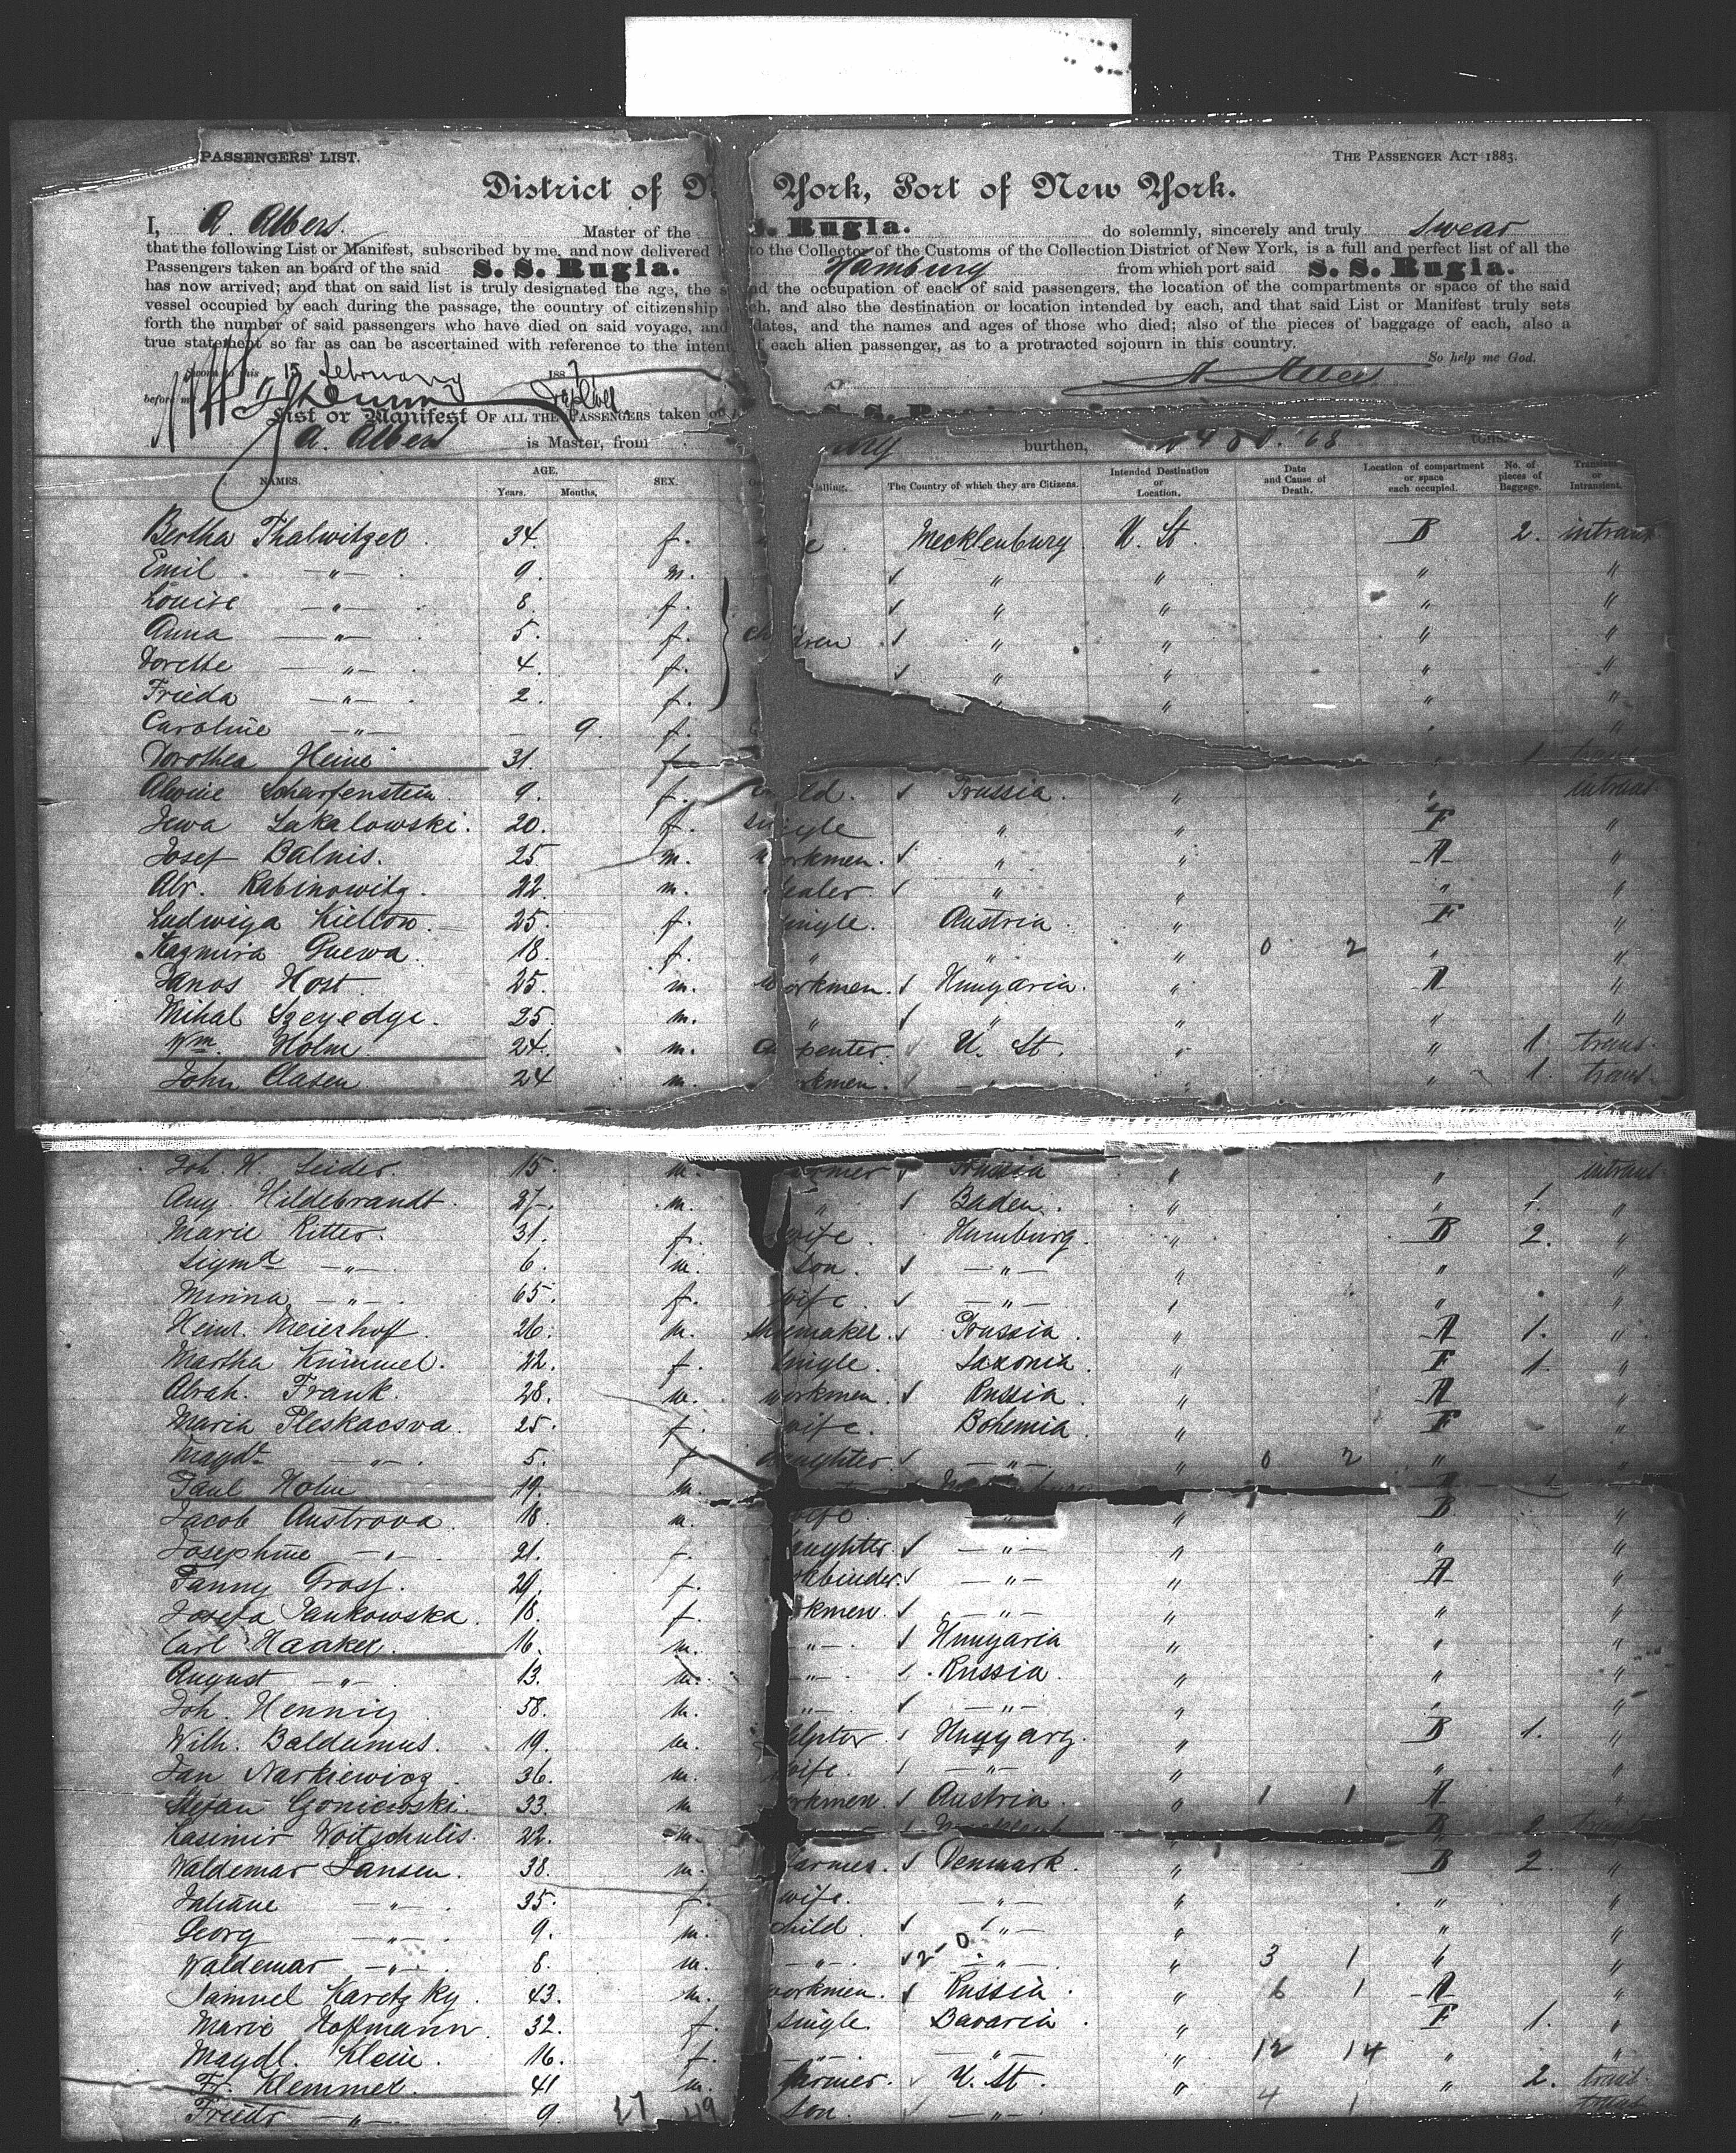 PASSENGERS' LIST. THE PASSENGER ACT 1883.
District of N York, Port of New York.
I, A. Albers. Master of the S. Rugia. do solemnly, sincerely and truly swear
that the following List or Manifest, subscribed by me, and now delivered to the Collector of the Customs of the Collection District of New York, is a full and perfect list of all the
Passengers taken an board of the said S. S. Rugia. Hamburg from which port said S. S. Rugia.
has now arrived; and that on said list is truly designated the age, the s nd the occupation of each of said passengers, the location of the compartments or space of the said
vessel occupied by each during the passage, the country of citizenship ch, and also the destination or location intended by each, and that said List or Manifest truly sets
forth the number of said passengers who have died on said voyage, and dates, and the names and ages of those who died; also of the pieces of baggage of each, also a
true statement so far as can be ascertained with reference to the intent f each alien passenger, as to a protracted sojourn in this country.
So help me God.
Sworn to this 15 February 188
before me
List or Manifest OF ALL THE PASSENGERS taken o
A. Albers is Master, from burthen, tons.
NAMES. AGE. Years. Months. SEX. alling. The Country of which they are Citizens. Intended Destination or Location. Date and Cause of Death. Location of compartment or space each occupied. No. of pieces of Baggage. Transient or Intransient.
Bertha Thalwitzer. 34. f. e. Mecklenburg. U. St. B 2. intrans
Emil " 9. m. " " " "
Louise " 8. f. " " " "
Anna " 5. f. children " " " "
Dorette " 4. f. " " " "
Frieda " 2. f. " " " "
Caroline " - 9. f. " "
Dorothea Heine 31. f. 1 trans
Alwine Scharfenstein 9. f. child. Prussia. " " intrans
Jewa Sakalowski. 20. f. single " " F "
Josef Balnis. 25 m. workmen. " " A "
Abr. Rabinowitz. 22. m. dealer " " " "
Ludwiga Kielton. 25. f. single. Austria. " F "
Kazmira Guewa. 18. f. " " " 0 2 " "
Janos Host 25. m. workmen. Hungaria. " A "
Mihal Szeyedgi. 25. m. " " " " "
Wm. Holm 24. m. Carpenter. U. St. " " 1 trans.
John Clasen 24 m. rkmen. " " " 1. trans.
Joh. H. Seider. 15. m. armer Prussia " " intrans
Aug. Hildebrandt. 27. m. " Baden. " " 1. "
Marie Ritter. 31. f. wife. Hamburg. " B 2. "
Sigmd " 6. m. son. " " " "
Minna " 65. f. wife. " " " "
Heinr. Meierhoff. 26. m. shoemaker. Prussia. " A 1. "
Martha Kümmel. 22. f. single. Saxonia. " F 1. "
Abrah. Frank. 28. m. workmen. Russia " A "
Maria Pleskacsva. 25. f. wife. Bohemia. " F "
Magdt. " 5. f. daughter. " " 0 2 " "
Paul Hohn 19. m.
Jacob Austrova. 18. m. wife " " B "
Josephine " 21. f. aughter. " " " "
Fanny Gross. 29. f. kbinder. " " A "
Josefa Jankowska. 18. f. rkmen. " " " "
Carl Haaker. 16. m. " Hungaria " " "
August " 13. m. " Russia. " " "
Joh. Hennig 58. m. " " " " "
Wilh. Baldumus. 19. m. lptor Hungary. " B 1. "
Jan Narkiewicz. 36. m. wife. " " "
Stefan Czoniewski. 33. m rkmen. Austria. " 1 1 A "
Kasimir Woitschulis. 22. m. B 2 trans
Waldemar Jansen. 38. m. farmer. Denmark. " B 2. "
Juliane " 35. f. wife. " " " "
Georg " 9. m. child " " " "
Waldemar " 8. m. " " " 3 1 " "
Samuel Karetzky. 43. m. workmen. Russia. " 6 1 A "
Marie Hoffmann. 32. f. single. Bavaria. " F 1. "
Magdl. Klein. 16. f. " " " 12 14 " "
Fr. Klemmer. 41 m. farmer. U. St. " " 2. trans.
Friedr " 9. 17 49 son. " 4 1 trans